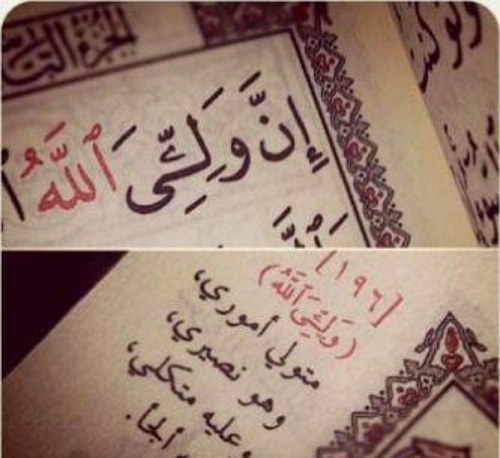 الجزء التا
إِنَّ وَلِـِّۧىَ ٱللَّهُ
[١٩٦]
(وَلِـِّۧىَ ٱللَّهُ)
متولي أموري،
وهو نصيري،
وعليه متكلي،
ألجأ.